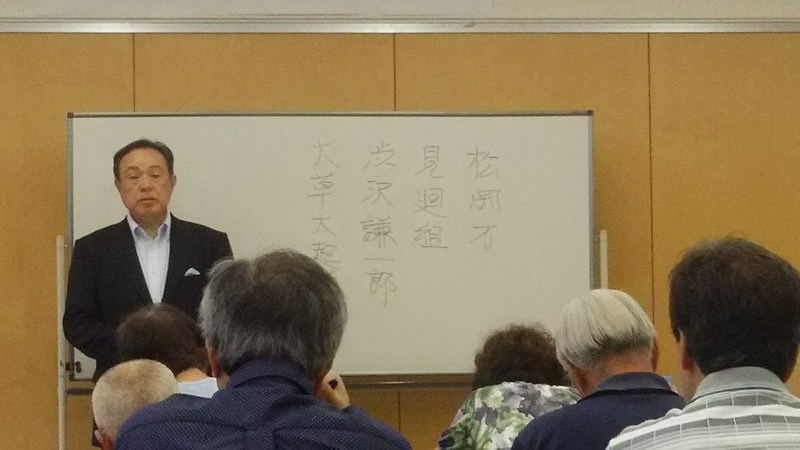 松岡万
見廻組
渋沢謙一郎
大草太起